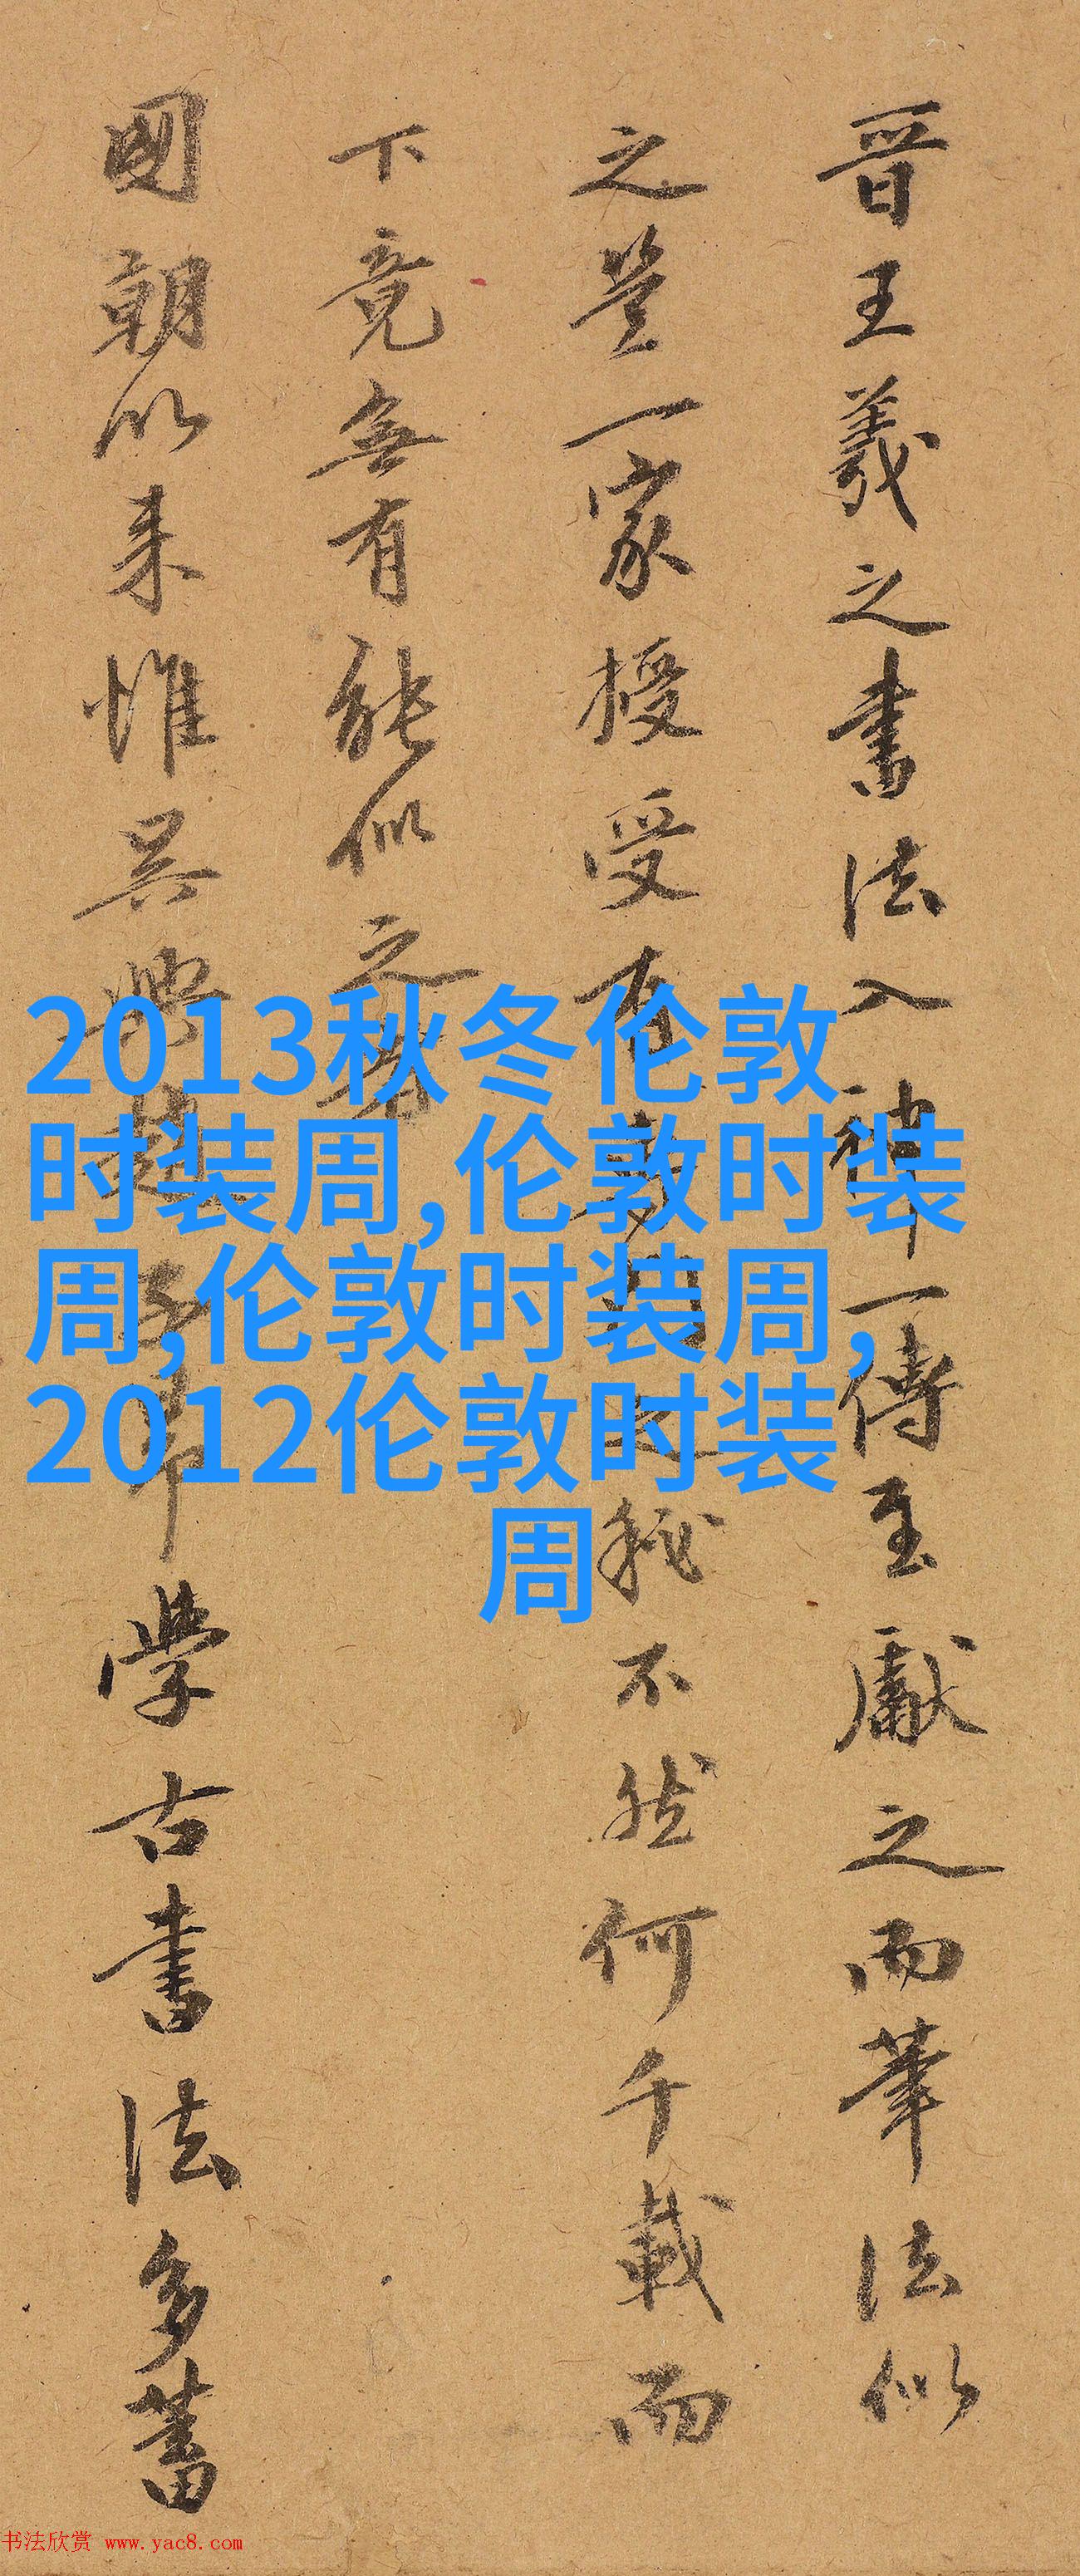 晋王羲之書法入神一傳至獻之而筆法似
之豈一家授受有之秘不然何千載而
下竟無有能似之者
國朝以来惟吳興趙子昂學古書法多蓄
2013秋冬伦敦
时装周,伦敦时装
周,伦敦时装周,
2012伦敦时装
周
书法欣赏 www.yac8.com